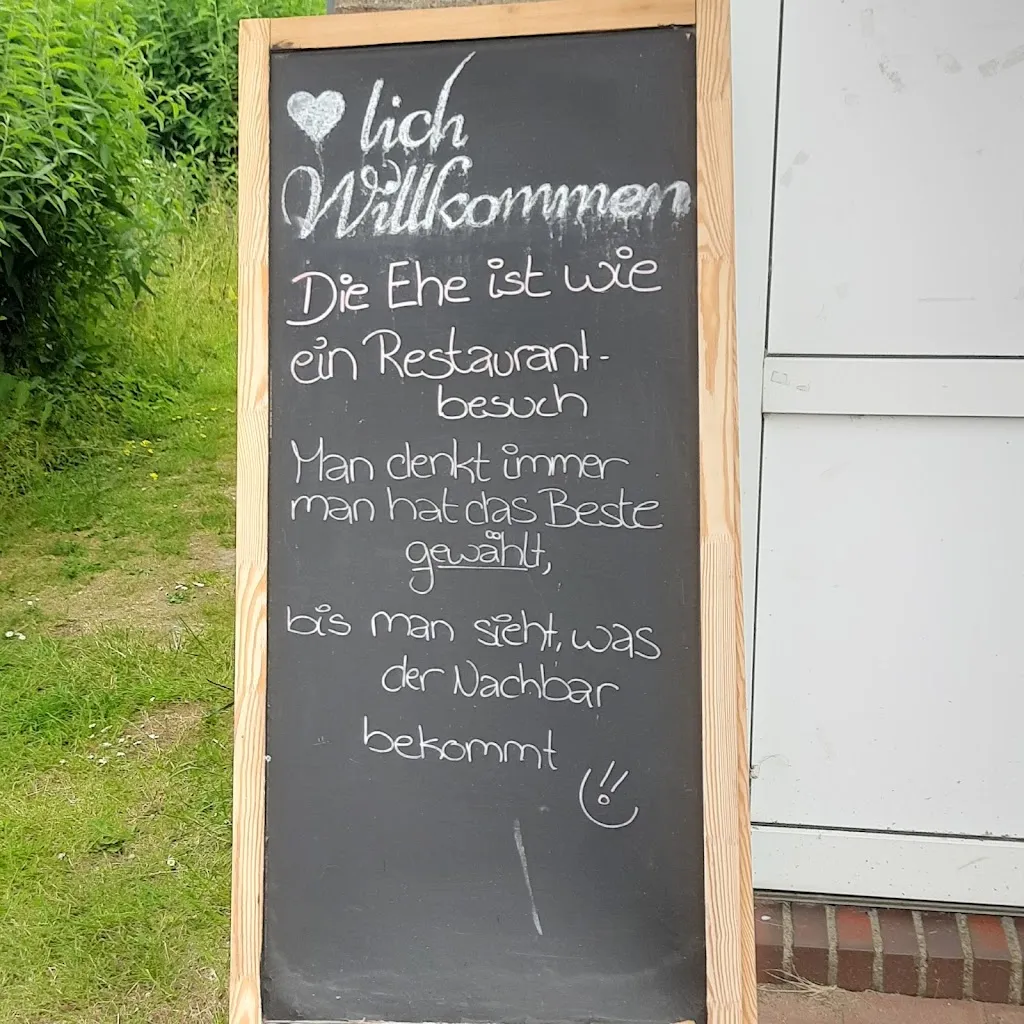 ♥lich
Willkommen
Die Ehe ist wie
ein Restaurant-
besuch
Man denkt immer
man hat das Beste
gewählt,
bis man sieht, was
der Nachbar
bekommt